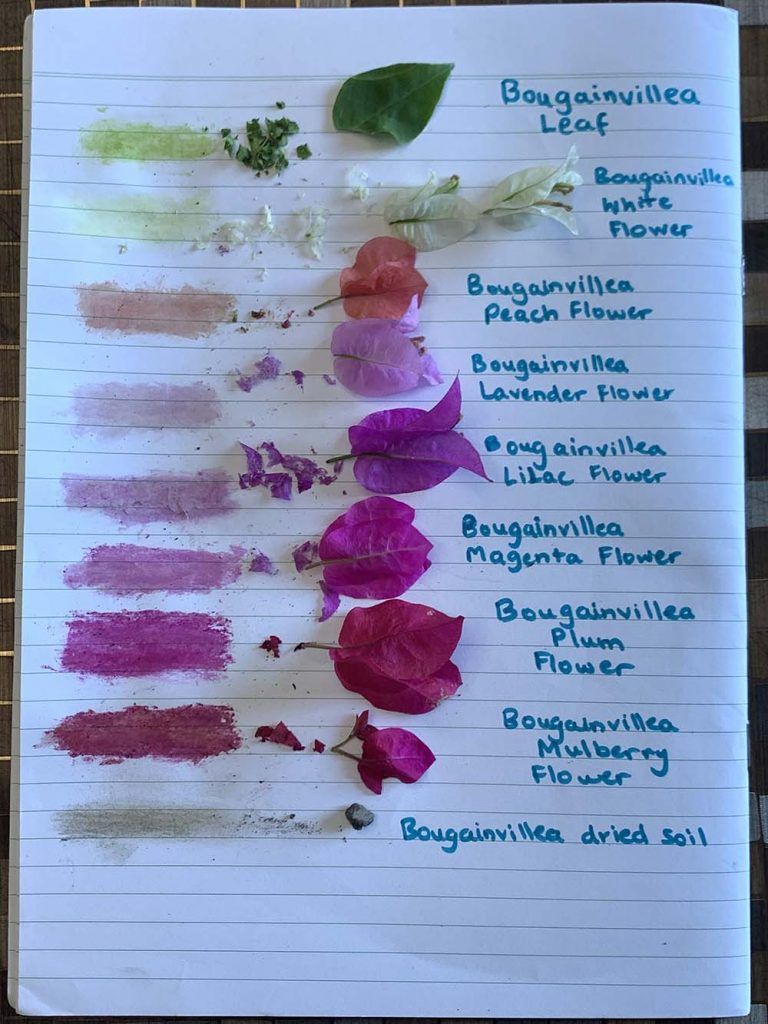 Bougainvillea
Leaf
Bougainvillea
White
Flower
Bougainvillea
Peach Flower
Bougainvillea
Lavender Flower
Bougainvillea
Lilac Flower
Bougainvillea
Magenta Flower
Bougainvillea
Plum
Flower
Bougainvillea
Mulberry
Flower
Bougainvillea dried soil